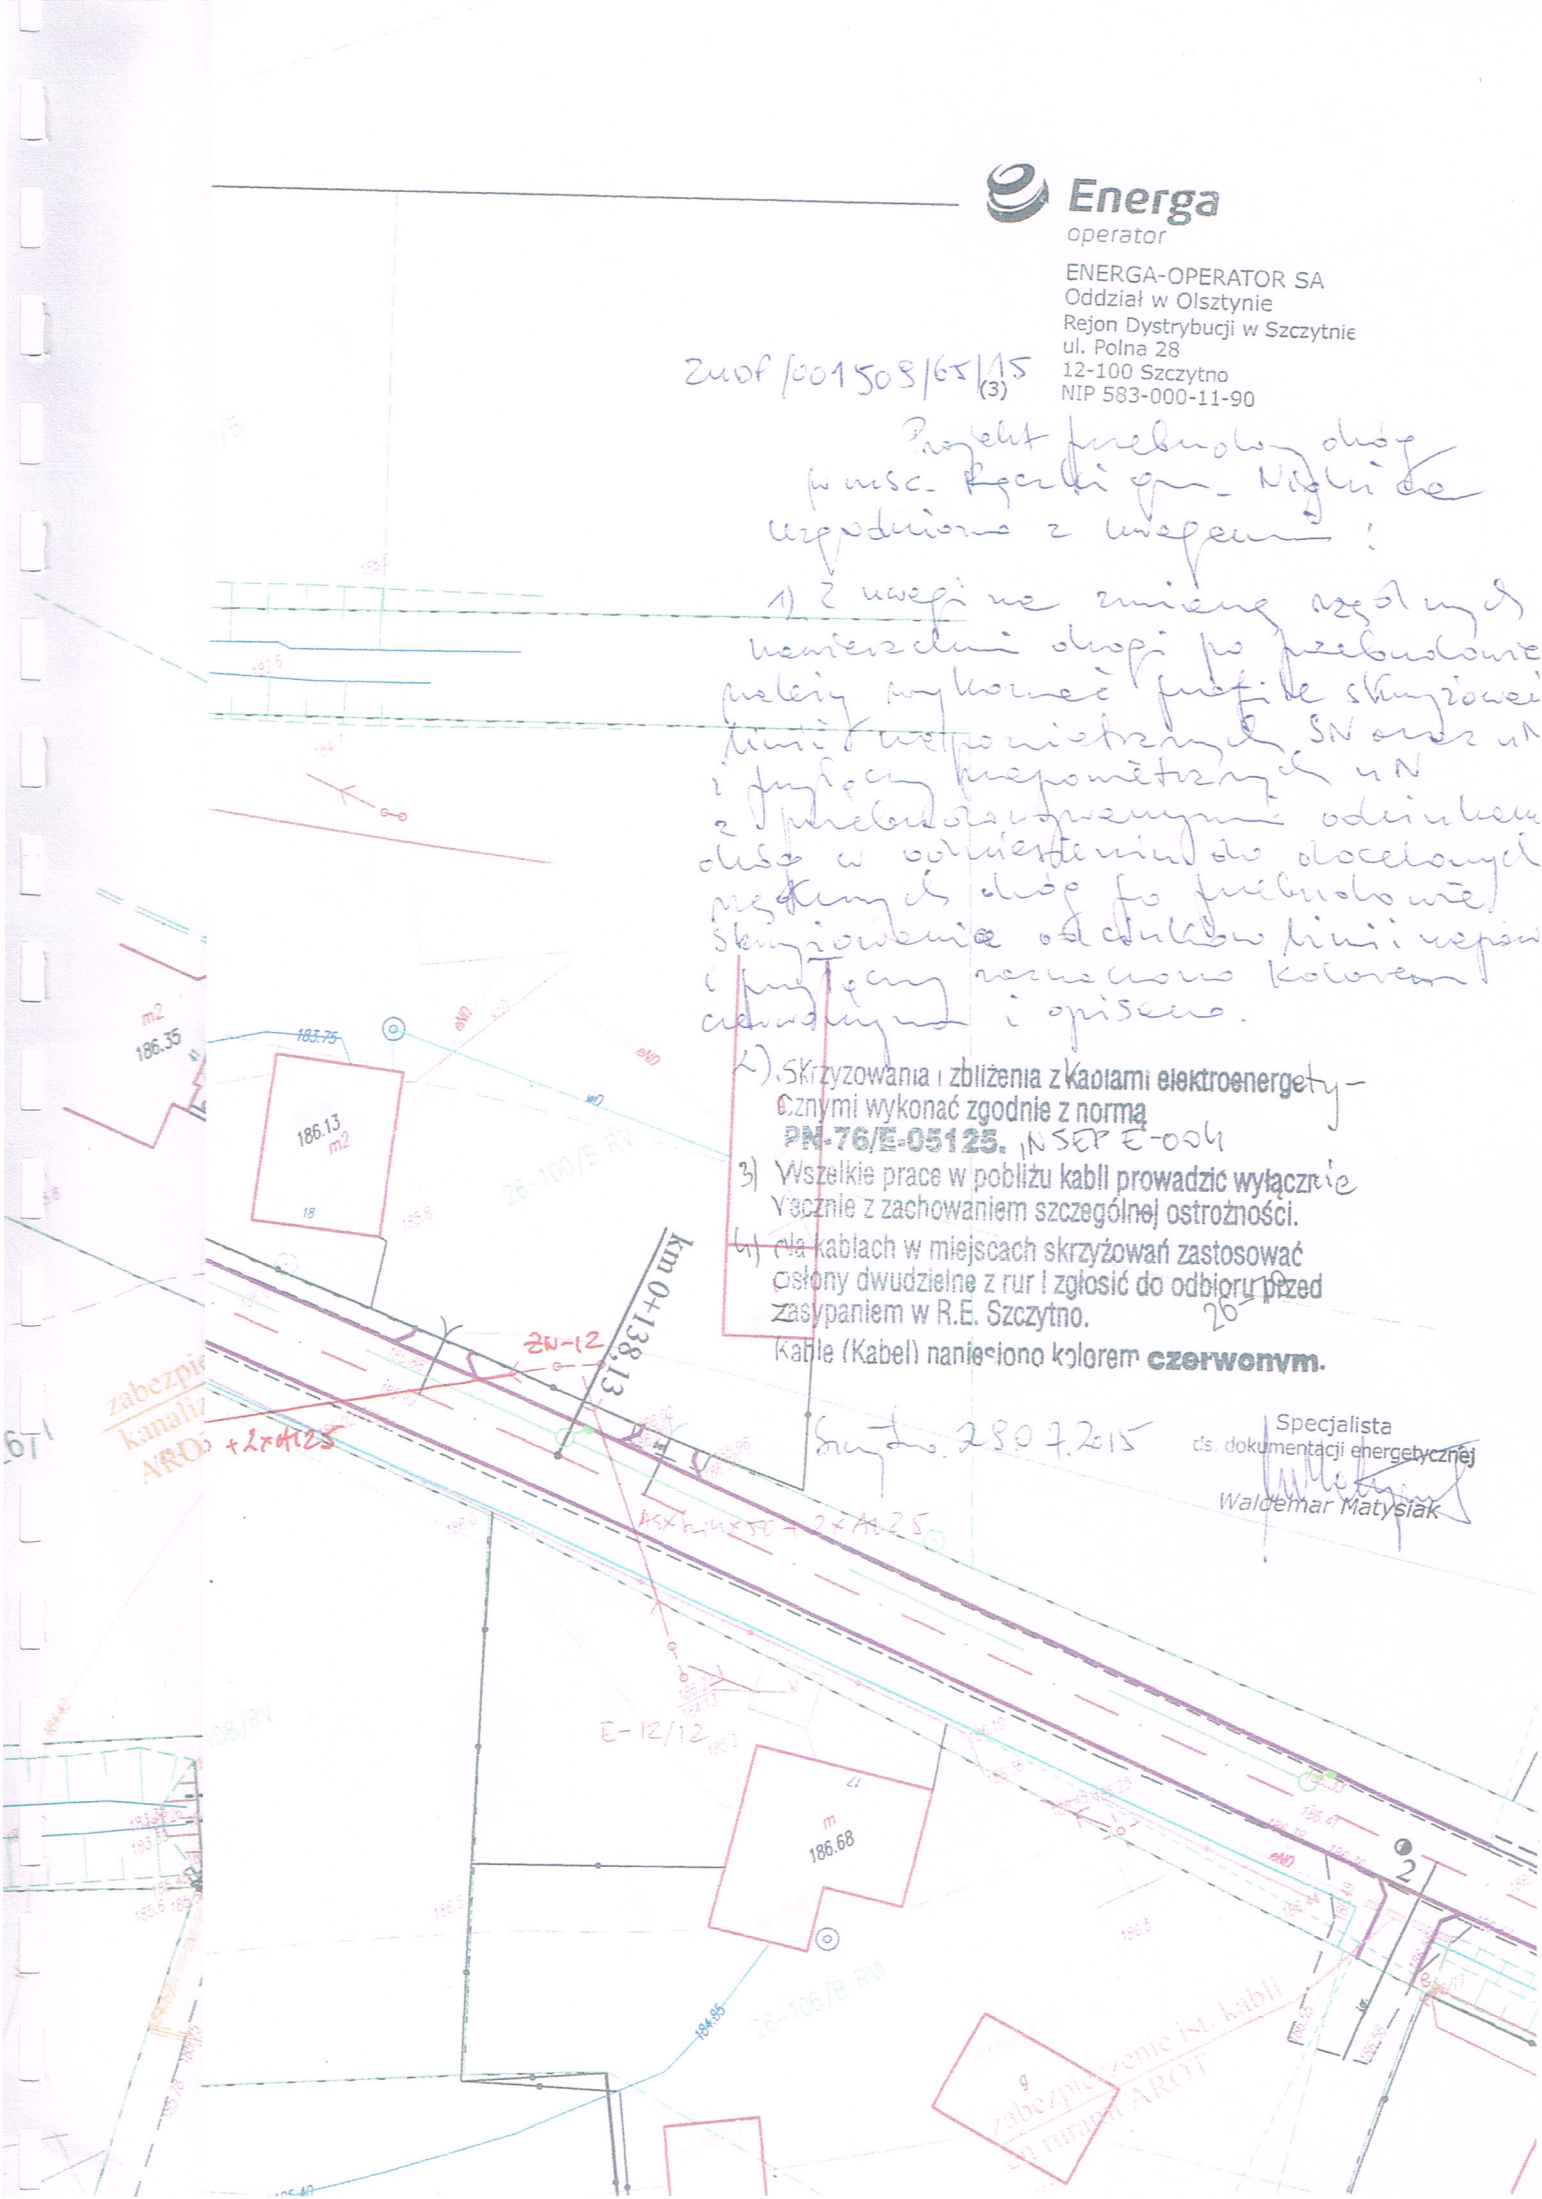 Energa
operator
ENERGA-OPERATOR SA
Oddział w Olsztynie
Rejon Dystrybucji w Szczytnie
ul. Polna 28
12-100 Szczytno
(3) NIP 583-000-11-90
ZUDP/001509/65/15
Projekt przebudowy dróg
w msc. Rączki gm. Nidzica
uzgodniono z uwagami :
1) Z uwagi na zmianę rzędnych
nawierzchni drogi po przebudowie
należy wykonać profile skrzyżowań
linii napowietrznych SN oraz nN
i przyłączy napowietrznych nN
z przebudowywanymi odcinkami
dróg w odniesieniu do docelowych
rzędnych dróg po przebudowie
Skrzyżowania odcinków linii napow
i przyłączy zaznaczono kolorem
czerwonym i opisano.
2). Skrzyżowania i zbliżenia z kablami elektroenergety-
cznymi wykonać zgodnie z normą
PN-76/E-05125. i N SEP E-004
3) Wszelkie prace w pobliżu kabli prowadzić wyłącznie
ręcznie z zachowaniem szczególnej ostrożności.
4) Na kablach w miejscach skrzyżowań zastosować
osłony dwudzielne z rur i zgłosić do odbioru przed
zasypaniem w R.E. Szczytno.
Kable (Kabel) naniesiono kolorem czerwonym.
Szczytno. 28.07.2015
Specjalista
ds. dokumentacji energetycznej
Waldemar Matysiak
m2
186.35
183.75
186.13
m2
18
185.8
26-100/B RV
eND
eND
km 0+138,13
ZN-12
+2xAl25
AsXSn 4x50 + 2xAl25
zabezpie
kanaliz
ARO
186.0
E-12/12
17
m
186.68
184.85
26-106/B RVI
108/RV
eND
2
186.41
186.55
186.56
g
zabezpieczenie ist. kabli
en rurami AROT
182.6
185.40